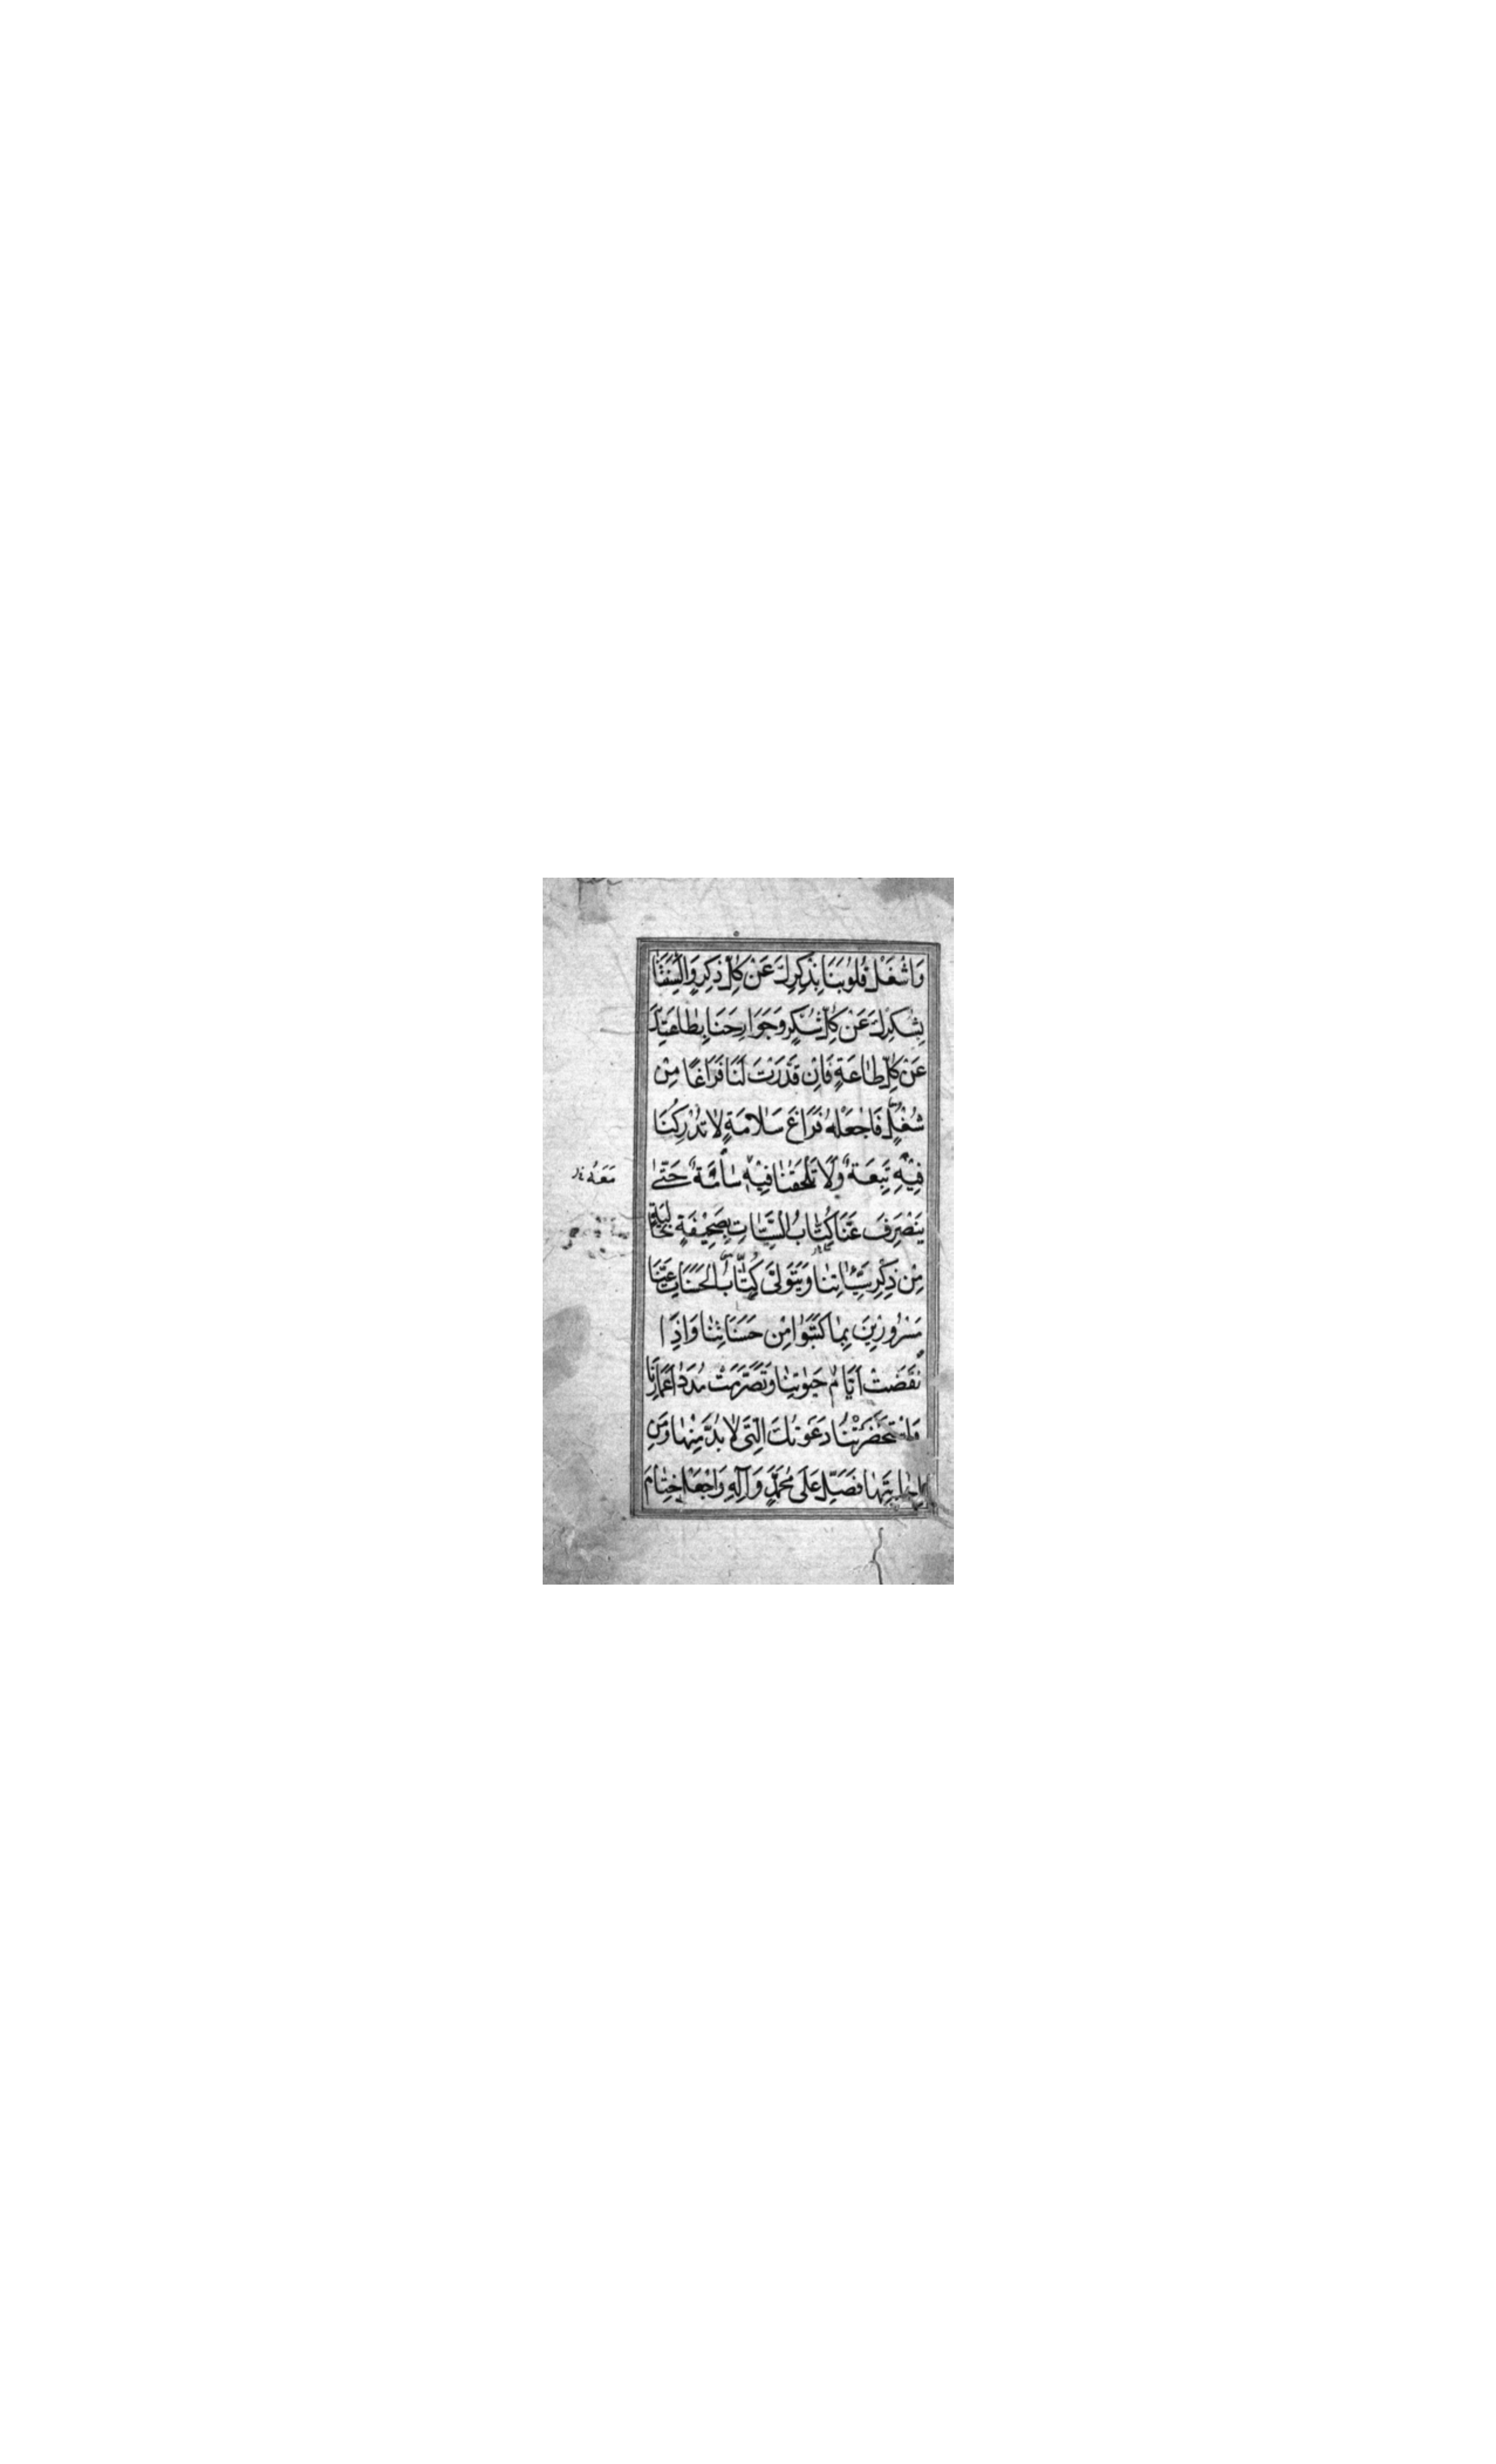 وَاشْغَلْ قُلُوبَنَا بِذِكْرِكَ عَنْ كُلِّ ذِكْرٍ وَاَلْسِنَتَنَا
بِشُكْرِكَ عَنْ كُلِّ شُكْرٍ وَجَوَارِحَنَا بِطَاعَتِكَ
عَنْ كُلِّ طَاعَةٍ فَاِنْ قَدَّرْتَ لَنَا فَرَاغًا مِنْ
شُغْلٍ فَاجْعَلْهُ فَرَاغَ سَلَامَةٍ لَا تُدْرِكُنَا
فِيْهِ تَبِعَةٌ وَلَا تَلْحَقُنَا فِيْهِ سَأْمَةٌ حَتّٰى
مَعَهُ
يَنْصَرِفَ عَنَّا كُتَّابُ السَّيِّئَاتِ بِصَحِيْفَةٍ خَالِيَةٍ
مِنْ ذِكْرِ سَيِّئَاتِنَا وَيَتَوَلّٰى كُتَّابُ الْحَسَنَاتِ عَنَّا
مَسْرُوْرِيْنَ بِمَا كَتَبُوْا مِنْ حَسَنَاتِنَا وَاِذَا
نْقَضَتْ اَيَّامُ حَيٰوتِنَا وَتَصَرَّمَتْ مُدَدُ اَعْمَارِنَا
وَاسْتَحْضَرَتْنَا دَعْوَتُكَ الَّتِى لَا بُدَّ مِنْهَا وَمِنْ
اِجَابَتِهَا فَصَلِّ عَلَى مُحَمَّدٍ وَآلِهِ وَاجْعَلْ خِتَامَ